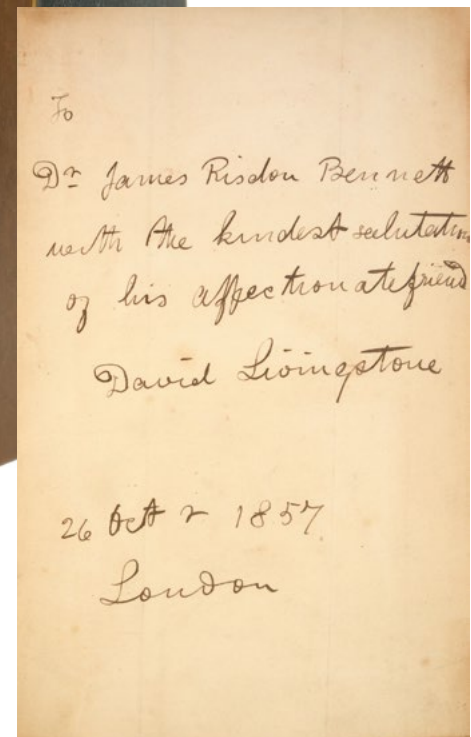 To
Dr James Risdon Bennett
with the kindest salutations
of his affectionate friend
David Livingstone
26 Octr 1857
London